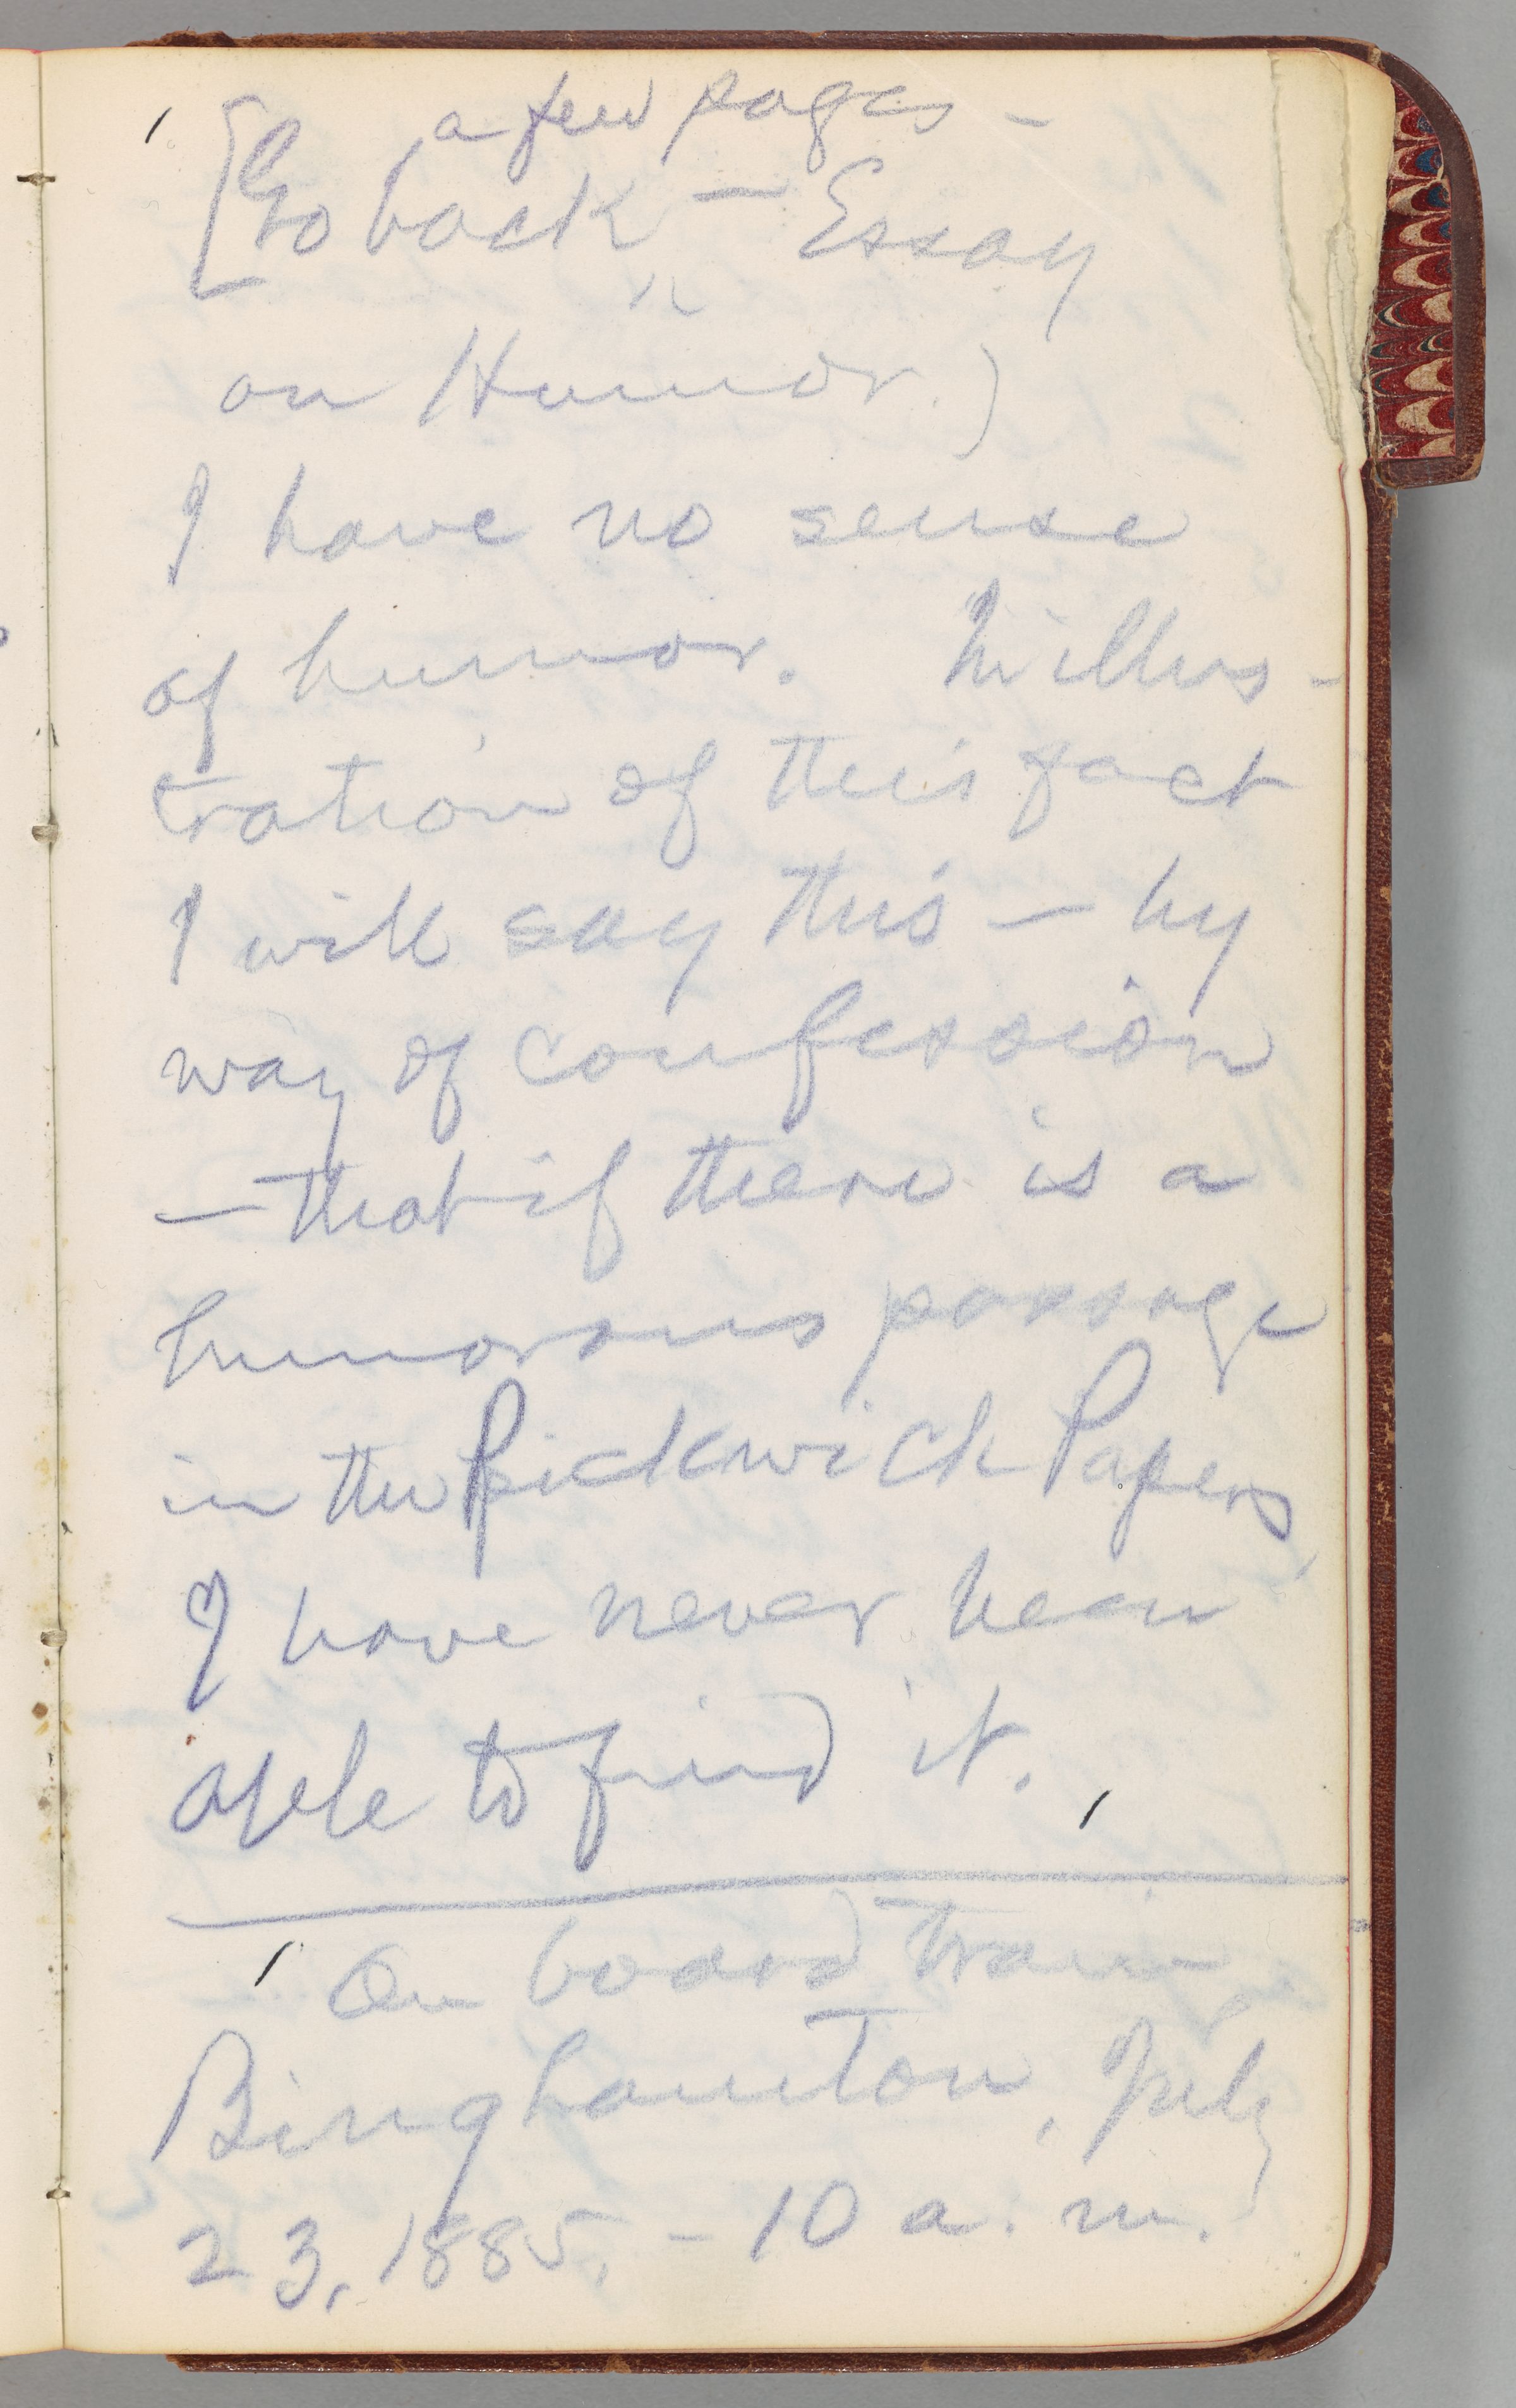 a few pages —
[Go back ^ — Essay
on Humor.)
I have no sense
of humor. In illus-
tration of this fact
I will say this — by
way of confession
— that if there is a
humorous passage
in the Pickwick Papers,
I have never been
able to find it.
On board train
Binghamton, July
23, 1885. — 10 a. m.